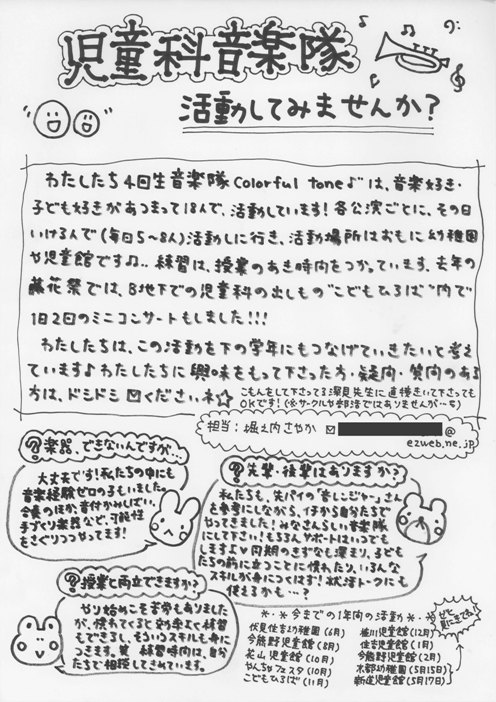 児童科音楽隊
活動してみませんか?
わたしたち4回生音楽隊Colorful tone♪は、音楽好き・
子ども好きがあつまって18人で、活動しています!各公演ごとに、その日
いける人で(毎日5〜8人)活動しに行き、活動場所はおもに幼稚園
や児童館です♫.. 練習は、授業のあき時間をつかっています。去年の
藤花祭では、B地下での児童科の出しもの"こどもひろば"内で
1日2回のミニコンサートもしました!!!
わたしたちは、この活動を下の学年にもつなげていきたいと考え
ています♪わたしたちに興味をもって下さった方・疑問・質問のある
方は、ドシドシ✉くださいネ☆
こもんをして下さってる深見先生に直接きいて下さっても
OKです!(※サークルや部活ではありませんが…₆)
担当:堀之内さやか ✉
@
ezweb.ne.jp
?楽器、できないんですが…
大丈夫です!私たちの中にも
音楽経験ゼロの子もいました。
合奏のほか音付かみしばい、
手づくり楽器など、可能性
もさぐりつつやってます!
?先輩・後輩はありますか?
私たちも、先パイの「音レンジャー」さん
を参考にしながら、イチから自分たちで
やってきました!みなさんらしい音楽隊
にして下さい!もちろんサポートはいつでも
しますよ♡同期のきずなも深まり、子ども
たちの前に立つことに慣れたり、いろんな
スキルが身につくはず!就活トークにも
使えるかも…?
?授業と両立できますか?
やり始めこそ苦労もありました
が、慣れてくると効率よく練習
もできるし、そういうスキルも身に
つきます。 練習時間は、自分
たちで相談してきめています。
*・*今までの1年間の活動*・*
ゼヒ見にきてネ!
伏見住吉幼稚園(6月)
今熊野児童館(8月)
花山児童館(10月)
やんちゃフェスタ(10月)
こどもひろば(11月)
修道児童館(12月)
住吉児童館(1月)
今熊野児童館(2月)
京都幼稚園(5月15日)
新道児童館(5月17日)